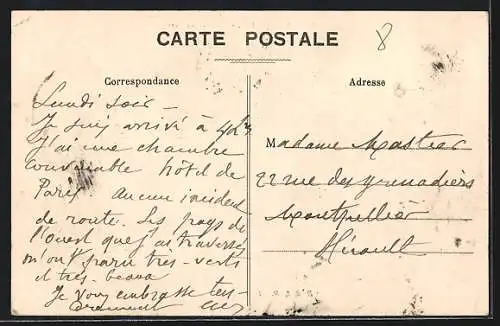 CARTE POSTALE
8
Correspondance
Adresse
Lundi soir –
Je suis arrivé à 4h
J'ai une chambre
convenable hôtel de
Paris. Aucun incident
de route. Les pays de
l'ouest que j'ai traversés
m'ont paru très-verts
et très-beaux
Je vous embrasse ten-
drement
Madame Mastier
22 rue des grenadiers
Montpellier
Hérault